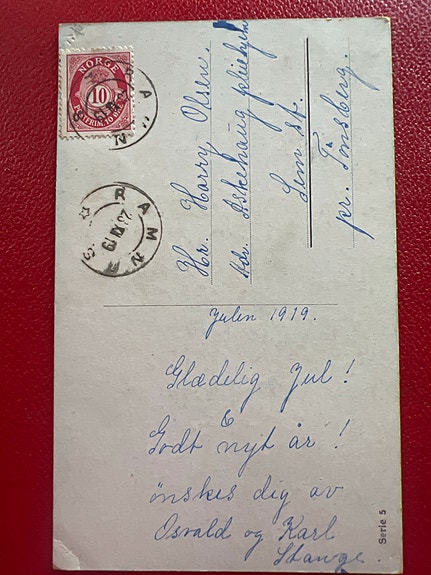 NORGE
10
POSTFRIM.
RAMNES
RAMNES
Hr. Harry Olsen.
Adr. Askehaug pleiehjem
Sem st.
pr. Tønsberg.
Julen 1919.
Glædelig Jul!
&
Godt nyt år!
ønskes dig av
Osvald og Karl
Stange.
Serie 5